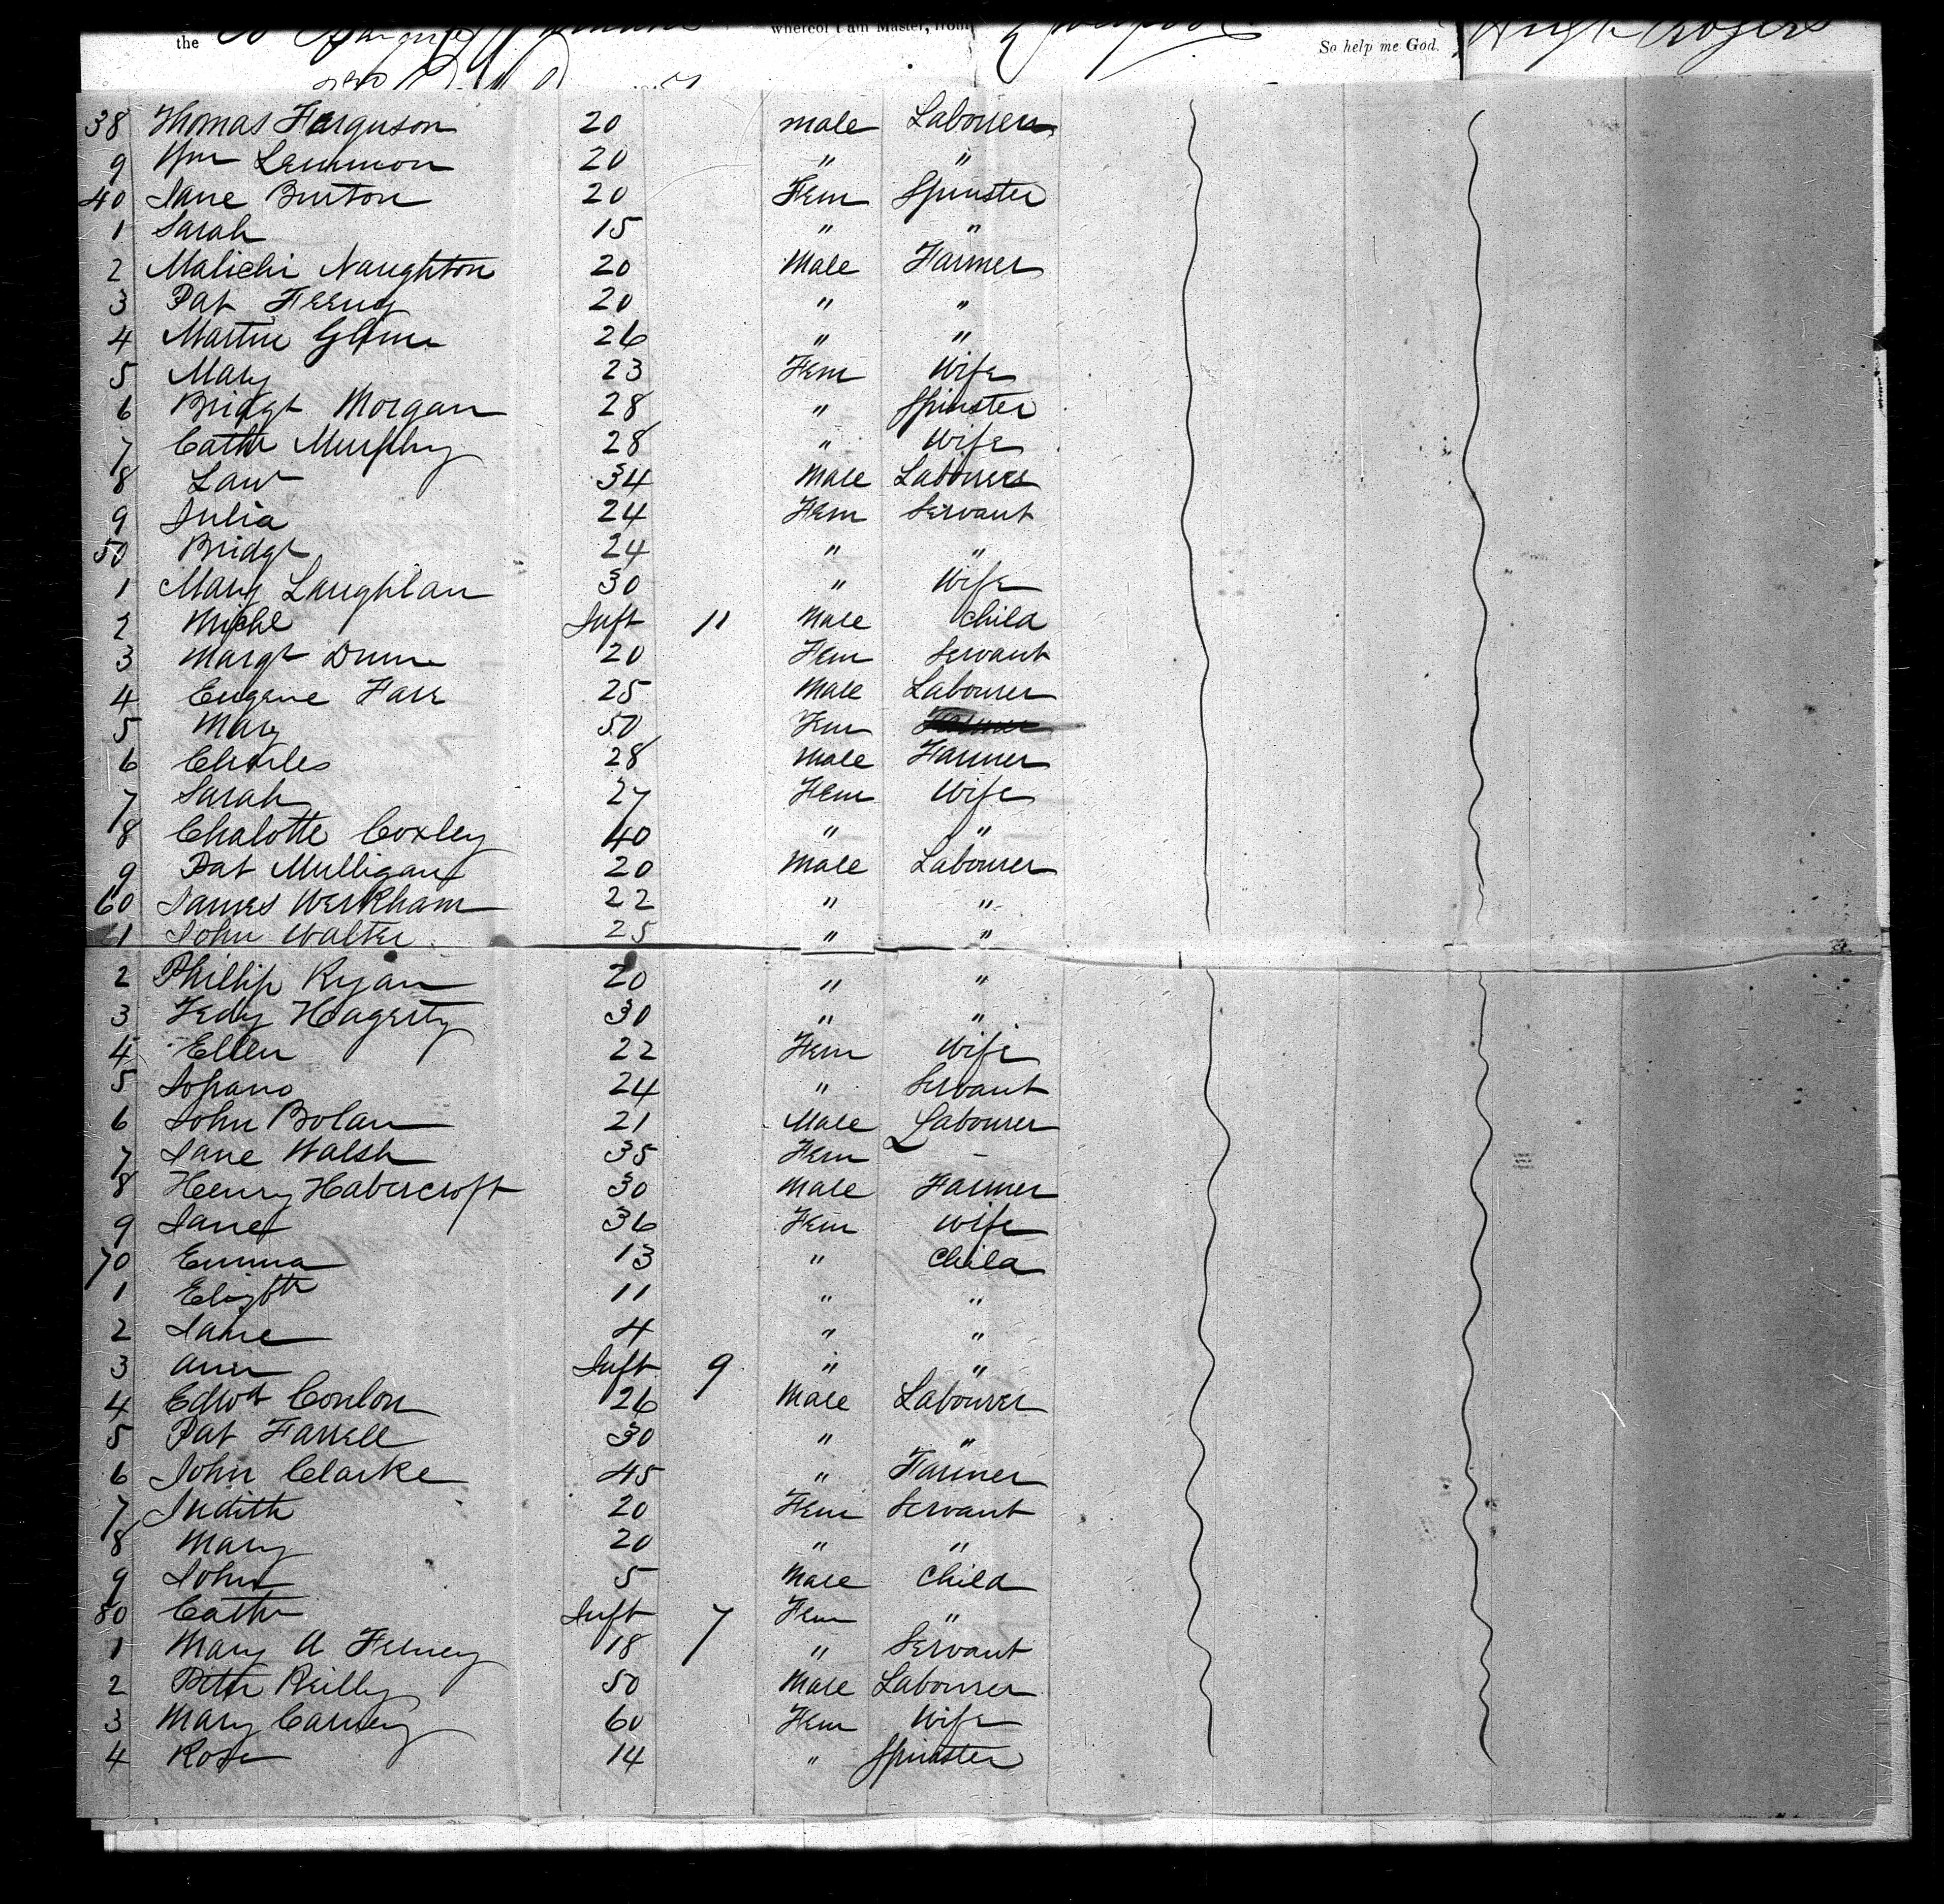 the whereof I am Master, from So help me God. Hugh Rogers
38 Thomas Ferguson 20 Male Labourer
9 Wm Lemmon 20 " "
40 Jane Burton 20 Fem Spinster
1 Sarah 15 " "
2 Malichi Naughton 20 Male Farmer
3 Pat Feeny 20 " "
4 Martin Glinn 26 " "
5 Mary 23 Fem Wife
6 Bridgt Morgan 28 " Spinster
7 Cathr Murphy 28 " Wife
8 Law 34 Male Labourer
9 Julia 24 Fem Servant
50 Bridgt 24 " "
1 Mary Laughlan 30 " Wife
2 Michl Inft 11 Male Child
3 Margt Dunn 20 Fem Servant
4 Eugene Farr 25 Male Labourer
5 Mary 50 Fem Farmer
6 Charles 28 Male Farmer
7 Sarah 27 Fem Wife
8 Chalotte Coxley 40 " "
9 Pat Mulligan 20 Male Labourer
60 James Werkham 22 " "
61 John Walter 25 " "
2 Phillip Ryan 20 " "
3 Tedy Hagerty 30 " "
4 Ellen 22 Fem Wife
5 24 " Servant
6 John Bolan 21 Male Labourer
7 Jane Walsh 35 Fem
8 Henry Habercroft 30 Male Farmer
9 Jane 36 Fem Wife
70 Emma 13 " Child
1 Elizbth 11 " "
2 Jane 4 " "
3 Ann Inft 9 " "
4 Edwd Conlon 26 Male Labourer
5 Pat Farrell 30 " "
6 John Clarke 45 " Farmer
7 Judith 20 Fem Servant
8 Mary 20 " "
9 John 5 Male Child
80 Cathr Inft 7 Fem "
1 Mary A Feeney 18 " Servant
2 Petr Reilly 50 Male Labourer
3 Mary Carney 60 Fem Wife
4 Rose 14 " Spinster